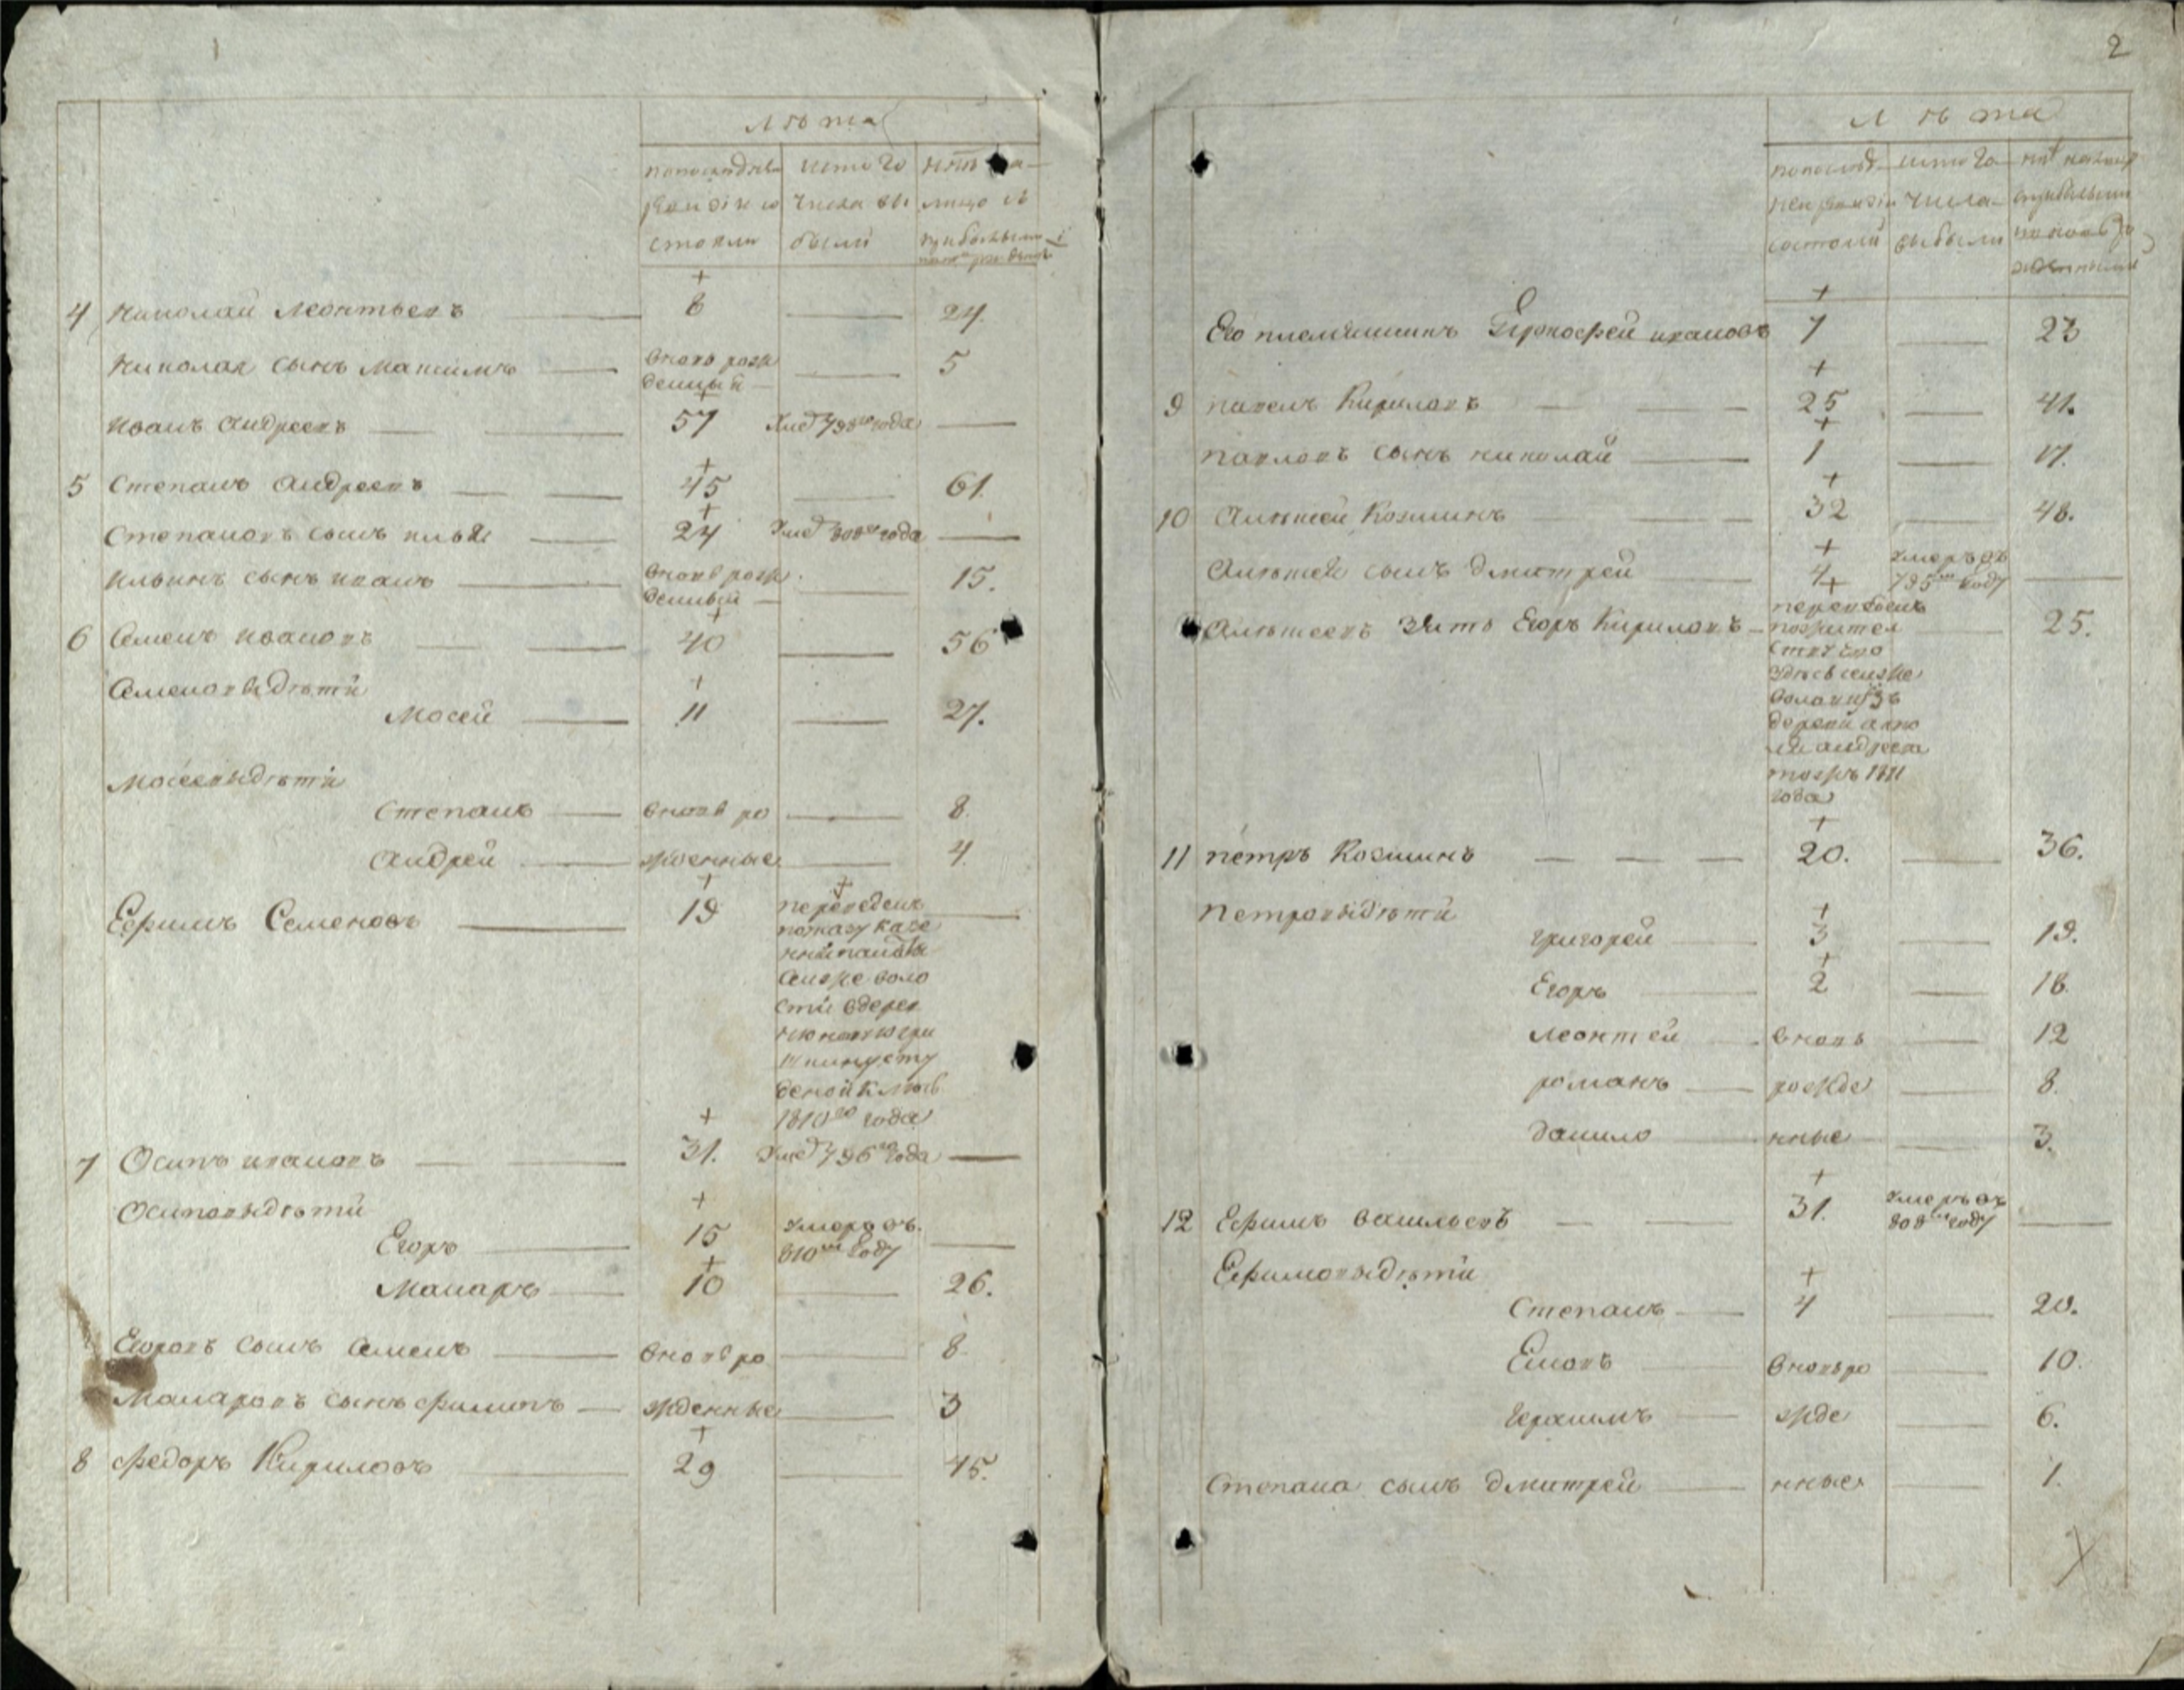 Лѣта
попоследней ревизіи состояли
изтого числа выбыли
ныне на лицо съ прибылыми и
4 Николай Леонтьевъ 8 24.
Николая сынъ Максимъ вновь рожденный 5
Иванъ Андреевъ 57 Умеръ 798го года
5 Степанъ Андреевъ 45 61.
Степановъ сынъ илья 24 Умеръ 808го года
Ильинъ сынъ иванъ вновь рожденный 15.
6 Семенъ ивановъ 40 56
Семеновыдѣти
Мосей 11 27.
Мосеевыдѣти
Степанъ вновь ро 8.
Андрей жденные 4.
Ефимъ Семеновъ 19 переведенъ
поуказу казе
нной палаты
воло
сти вдерев
ню
1810го года
7 Осипъ ивановъ 31. Умеръ 796го года
Осиповыдѣти
Егоръ 15 умеръ въ 810м году
Макаръ 10 26.
Егоровъ сынъ Семенъ вновь ро 8
Макаровъ сынъ Филипъ жденные 3
8 Федоръ Кириловъ 29 45.
2
Лѣта
попослѣдней ревизіи состояли
изтого числа выбыли
Его племянникъ Ерофей ивановъ 7 23
9 павелъ Кириловъ 25 41.
павловъ сынъ николай 1 17.
10 Алексей Козминъ 32 48.
Алексея сынъ дмитрей 4 умеръ въ 795м году
Алексеевъ зять Егоръ Кириловъ переведенъ 25.
волости изъ
деревни
андреева
1811
года
11 петръ Козминъ 20. 36.
петровыдѣти
григорей 3 19.
Егоръ 2 18.
леонтей вновь 12
романъ рожде 8.
данило нные 3.
12 Ефимъ васильевъ 31. умеръ въ 808м году
Ефимовыдѣти
Степанъ 4 20.
вновь ро 10.
Герасимъ жде 6.
Степана сынъ дмитрей нные 1.